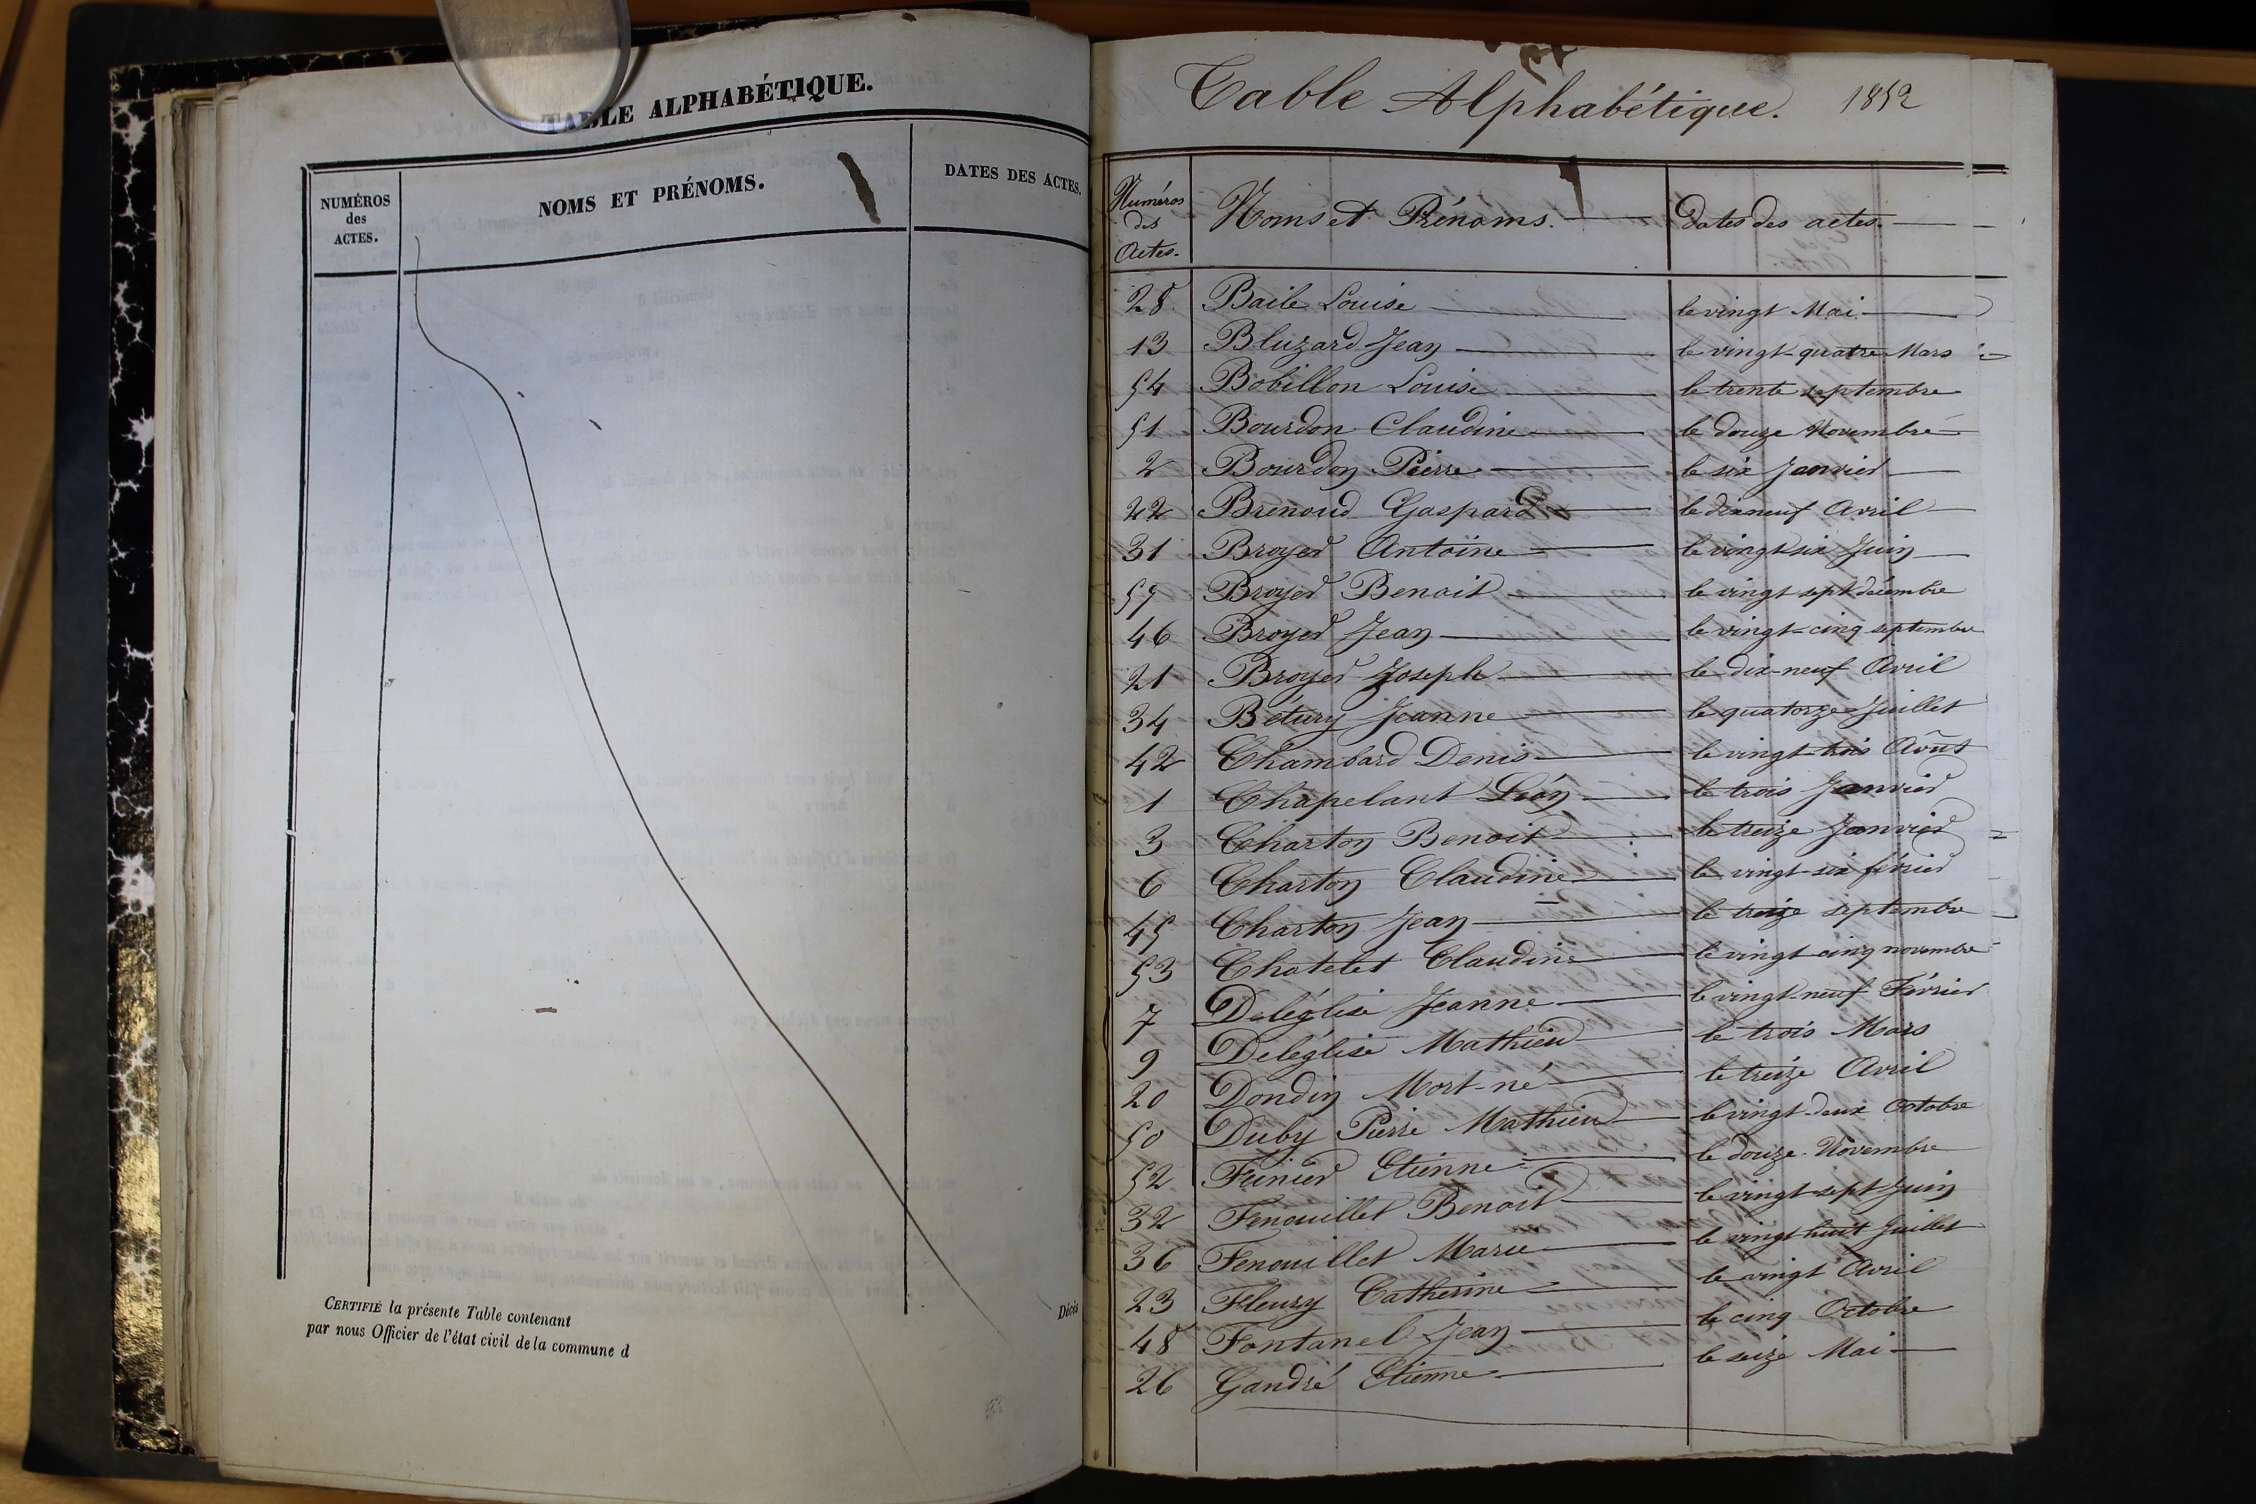 TABLE ALPHABÉTIQUE.
NUMÉROS
des
ACTES.
NOMS ET PRÉNOMS.
DATES DES ACTES.
CERTIFIÉ la présente Table contenant
par nous Officier de l'état civil de la commune d
Décès
Table Alphabétique. 1852
Numéros
des
Actes.
Noms et Prénoms.
Dates des actes.
28 Baile Louise le vingt Mai
13 Bluzard Jean le vingt-quatre Mars
54 Bobillon Louise le trente septembre
51 Bourdon Claudine le douze Novembre
2 Bourdon Pierre le six Janvier
22 Brenoud Gaspard le dix neuf Avril
31 Broyer Antoine le vingt six Juin
57 Broyer Benoit le vingt sept décembre
46 Broyer Jean le vingt-cinq septembre
21 Broyer Joseph le dix-neuf Avril
34 Bétury Jeanne le quatorze Juillet
42 Chambard Denis le vingt-trois Août
1 Chapelant Léon le trois Janvier
3 Charton Benoit le treize Janvier
6 Charton Claudine le vingt-six février
45 Charton Jean le treize septembre
53 Chatelet Claudine le vingt-cinq novembre
7 Deléglise Jeanne le vingt-neuf Février
9 Deléglise Mathieu le trois Mars
20 Dondin Mort-né le treize Avril
50 Duby Pierre Mathieu le vingt-deux Octobre
52 Etienne le douze Novembre
32 Fenouillet Benoit le vingt-sept Juin
36 Fenouillet Marie le vingt huit Juillet
23 Fleury Catherine le vingt Avril
48 Fontanel Jean le cinq Octobre
26 Gandré Etienne le seize Mai